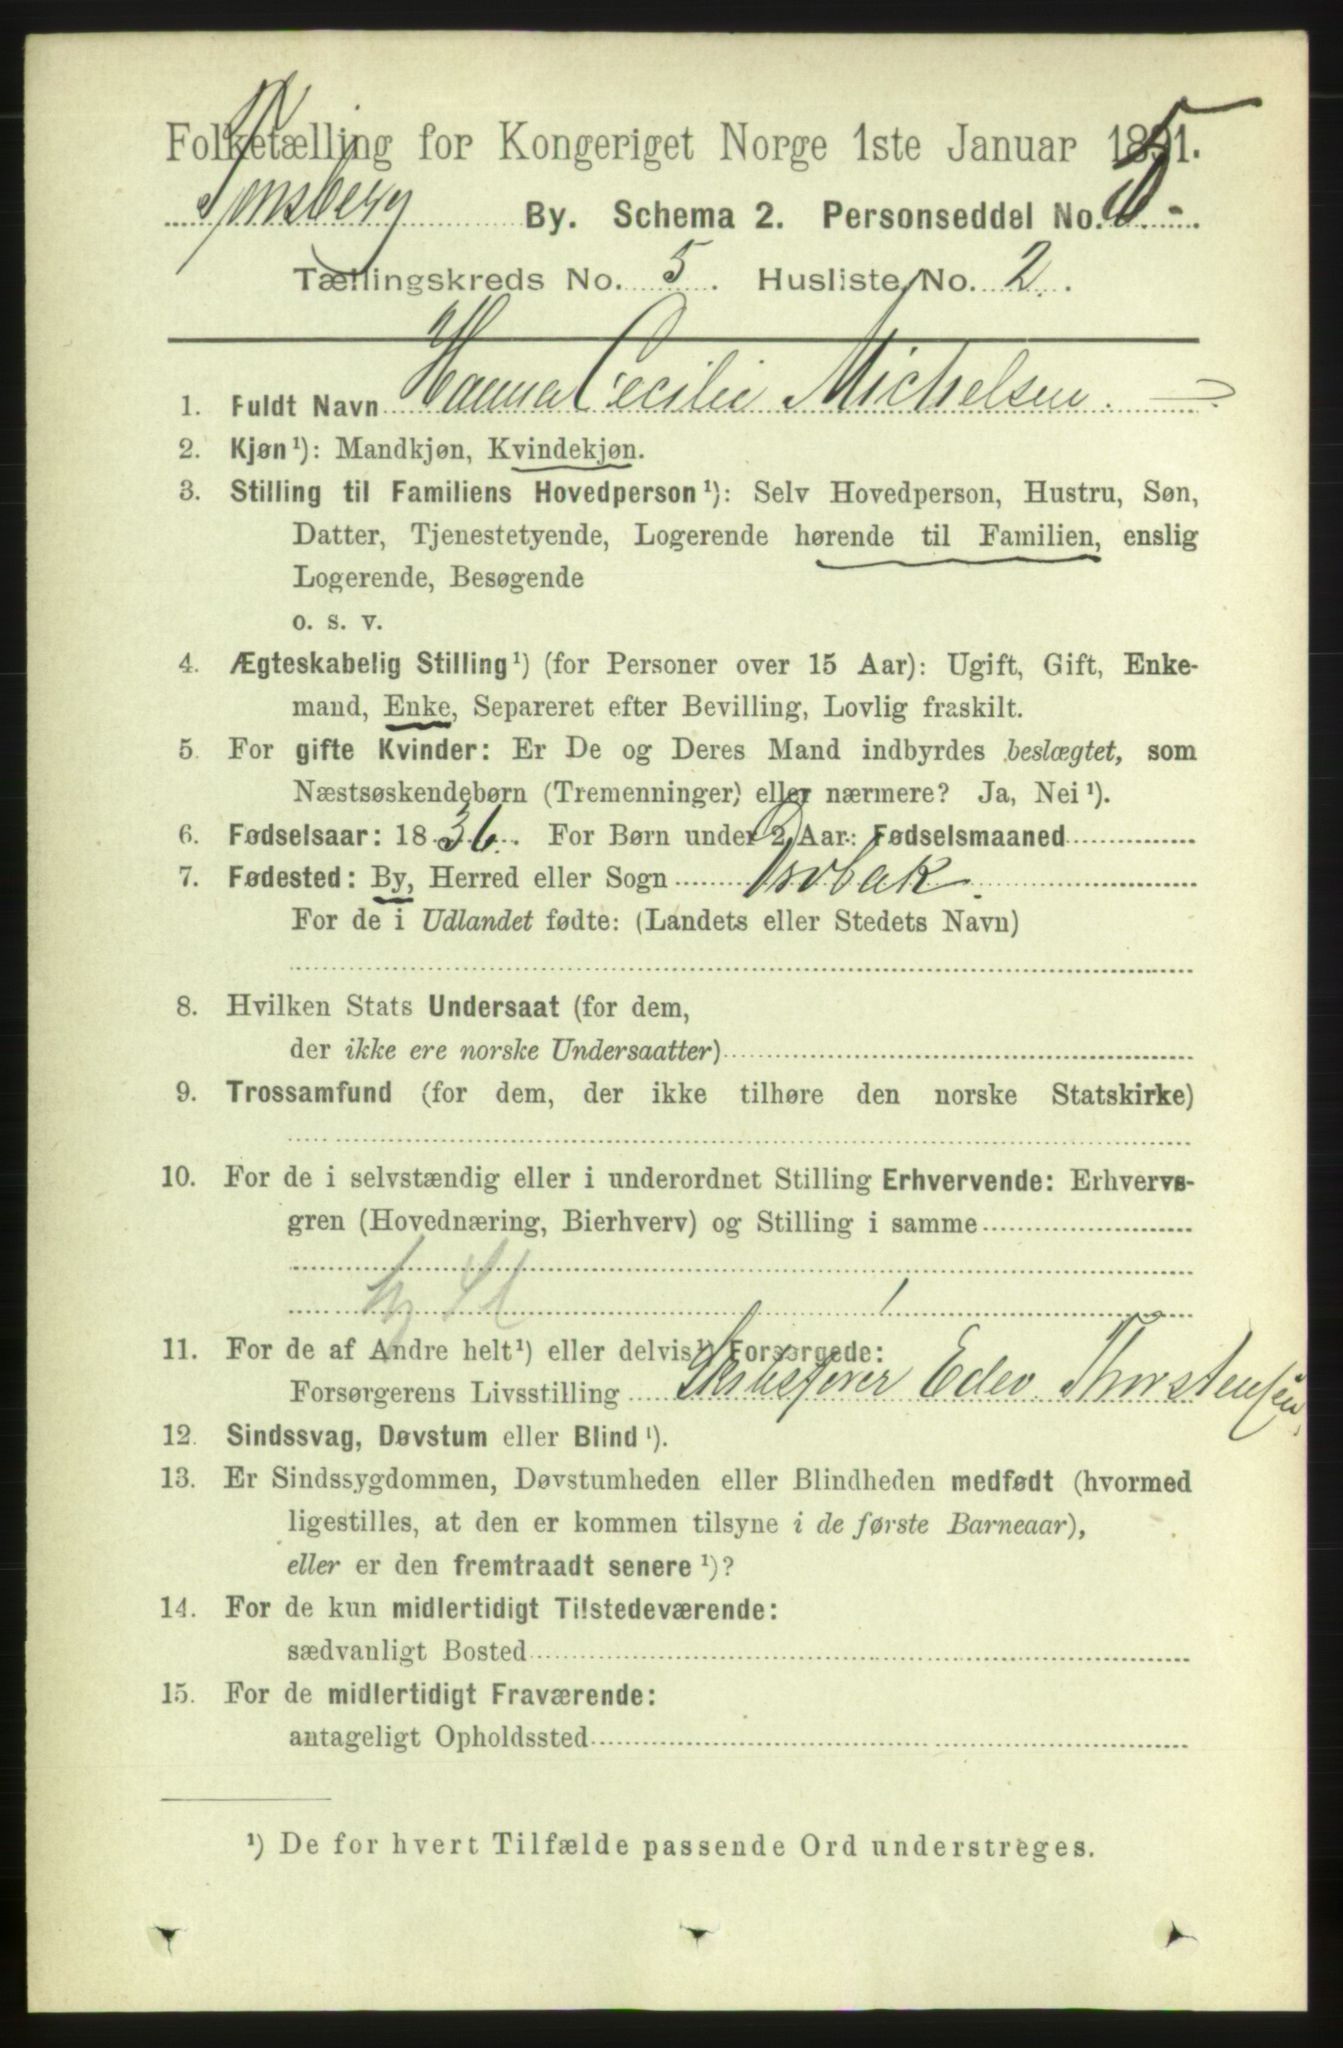 Folketælling for Kongeriget Norge 1ste Januar 1891.
Tønsberg By. Schema 2. Personseddel No.
Tællingskreds No. 5. Husliste No. 2.
1. Fuldt Navn Hanna Cecilie Michelsen.
2. Kjøn ¹): Mandkjøn, Kvindekjøn.
3. Stilling til Familiens Hovedperson ¹): Selv Hovedperson, Hustru, Søn,
Datter, Tjenestetyende, Logerende hørende til Familien, enslig
Logerende, Besøgende
o. s. v.
4. Ægteskabelig Stilling ¹) (for Personer over 15 Aar): Ugift, Gift, Enke-
mand, Enke, Separeret efter Bevilling, Lovlig fraskilt.
5. For gifte Kvinder: Er De og Deres Mand indbyrdes beslægtet, som
Næstsøskendebørn (Tremenninger) eller nærmere? Ja, Nei ¹).
6. Fødselsaar: 1836. For Børn under 2 Aar: Fødselsmaaned
7. Fødested: By, Herred eller Sogn Drøbak.
For de i Udlandet fødte: (Landets eller Stedets Navn)
8. Hvilken Stats Undersaat (for dem,
der ikke ere norske Undersaatter)
9. Trossamfund (for dem, der ikke tilhøre den norske Statskirke)
10. For de i selvstændig eller i underordnet Stilling Erhvervende: Erhvervs-
gren (Hovednæring, Bierhverv) og Stilling i samme
11. For de af Andre helt ¹) eller delvis ¹) Forsørgede:
Forsørgerens Livsstilling Skibsfører Edev. Thorstensen,
12. Sindssvag, Døvstum eller Blind ¹).
13. Er Sindssygdommen, Døvstumheden eller Blindheden medfødt (hvormed
ligestilles, at den er kommen tilsyne i de første Barneaar),
eller er den fremtraadt senere ¹)?
14. For de kun midlertidigt Tilstedeværende:
sædvanligt Bosted
15. For de midlertidigt Fraværende:
antageligt Opholdssted
¹) De for hvert Tilfælde passende Ord understreges.